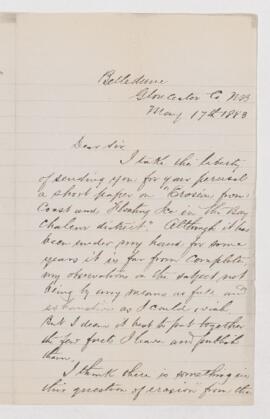 Belledune
Gloucester Co N.B.
May 17th 1883
Dear Sir
I take the liberty
of sending you for your perusal
a short paper on "Erosion from
Coast and Floating Ice in the Bay
Chaleur district". Although it has
been under my hand for some
years it is far from complete
my observations on the subject not
being by any means as full and
exhaustive as I could wish.
But I deem it best to put together
the few facts I have and publish
them,
I think there is something in
this question of erosion from the